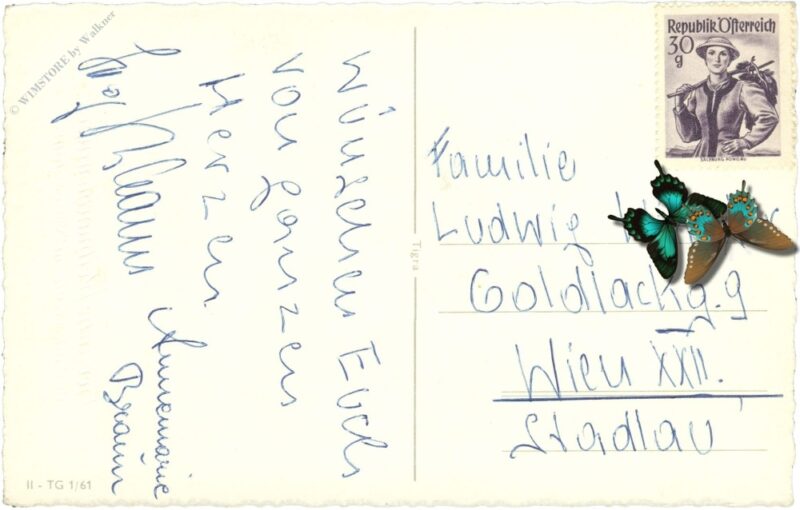 © WIMSTORE by Walkner
wünschen Euch
von ganzen
Herzen
Braun
Annemarie
Braun
II - TG 1/61
Tigra
Republik Österreich
30
g
SALZBURG PONGAU
Familie
Ludwig
Goldlackg. 9
Wien XXII.
Stadlau